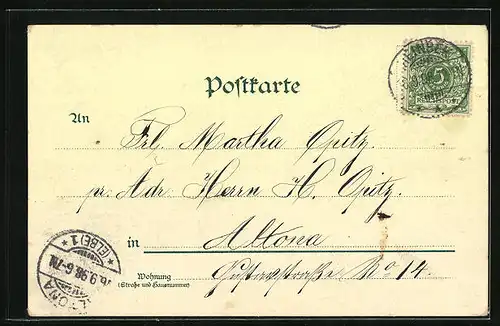 Postkarte
An Frl. Martha Opitz,
pr. Adr. Herrn H. Opitz,
in Altona
Wohnung
(Straße und Hausnummer)
No 14.
5
ALTONA
(ELBE) 1